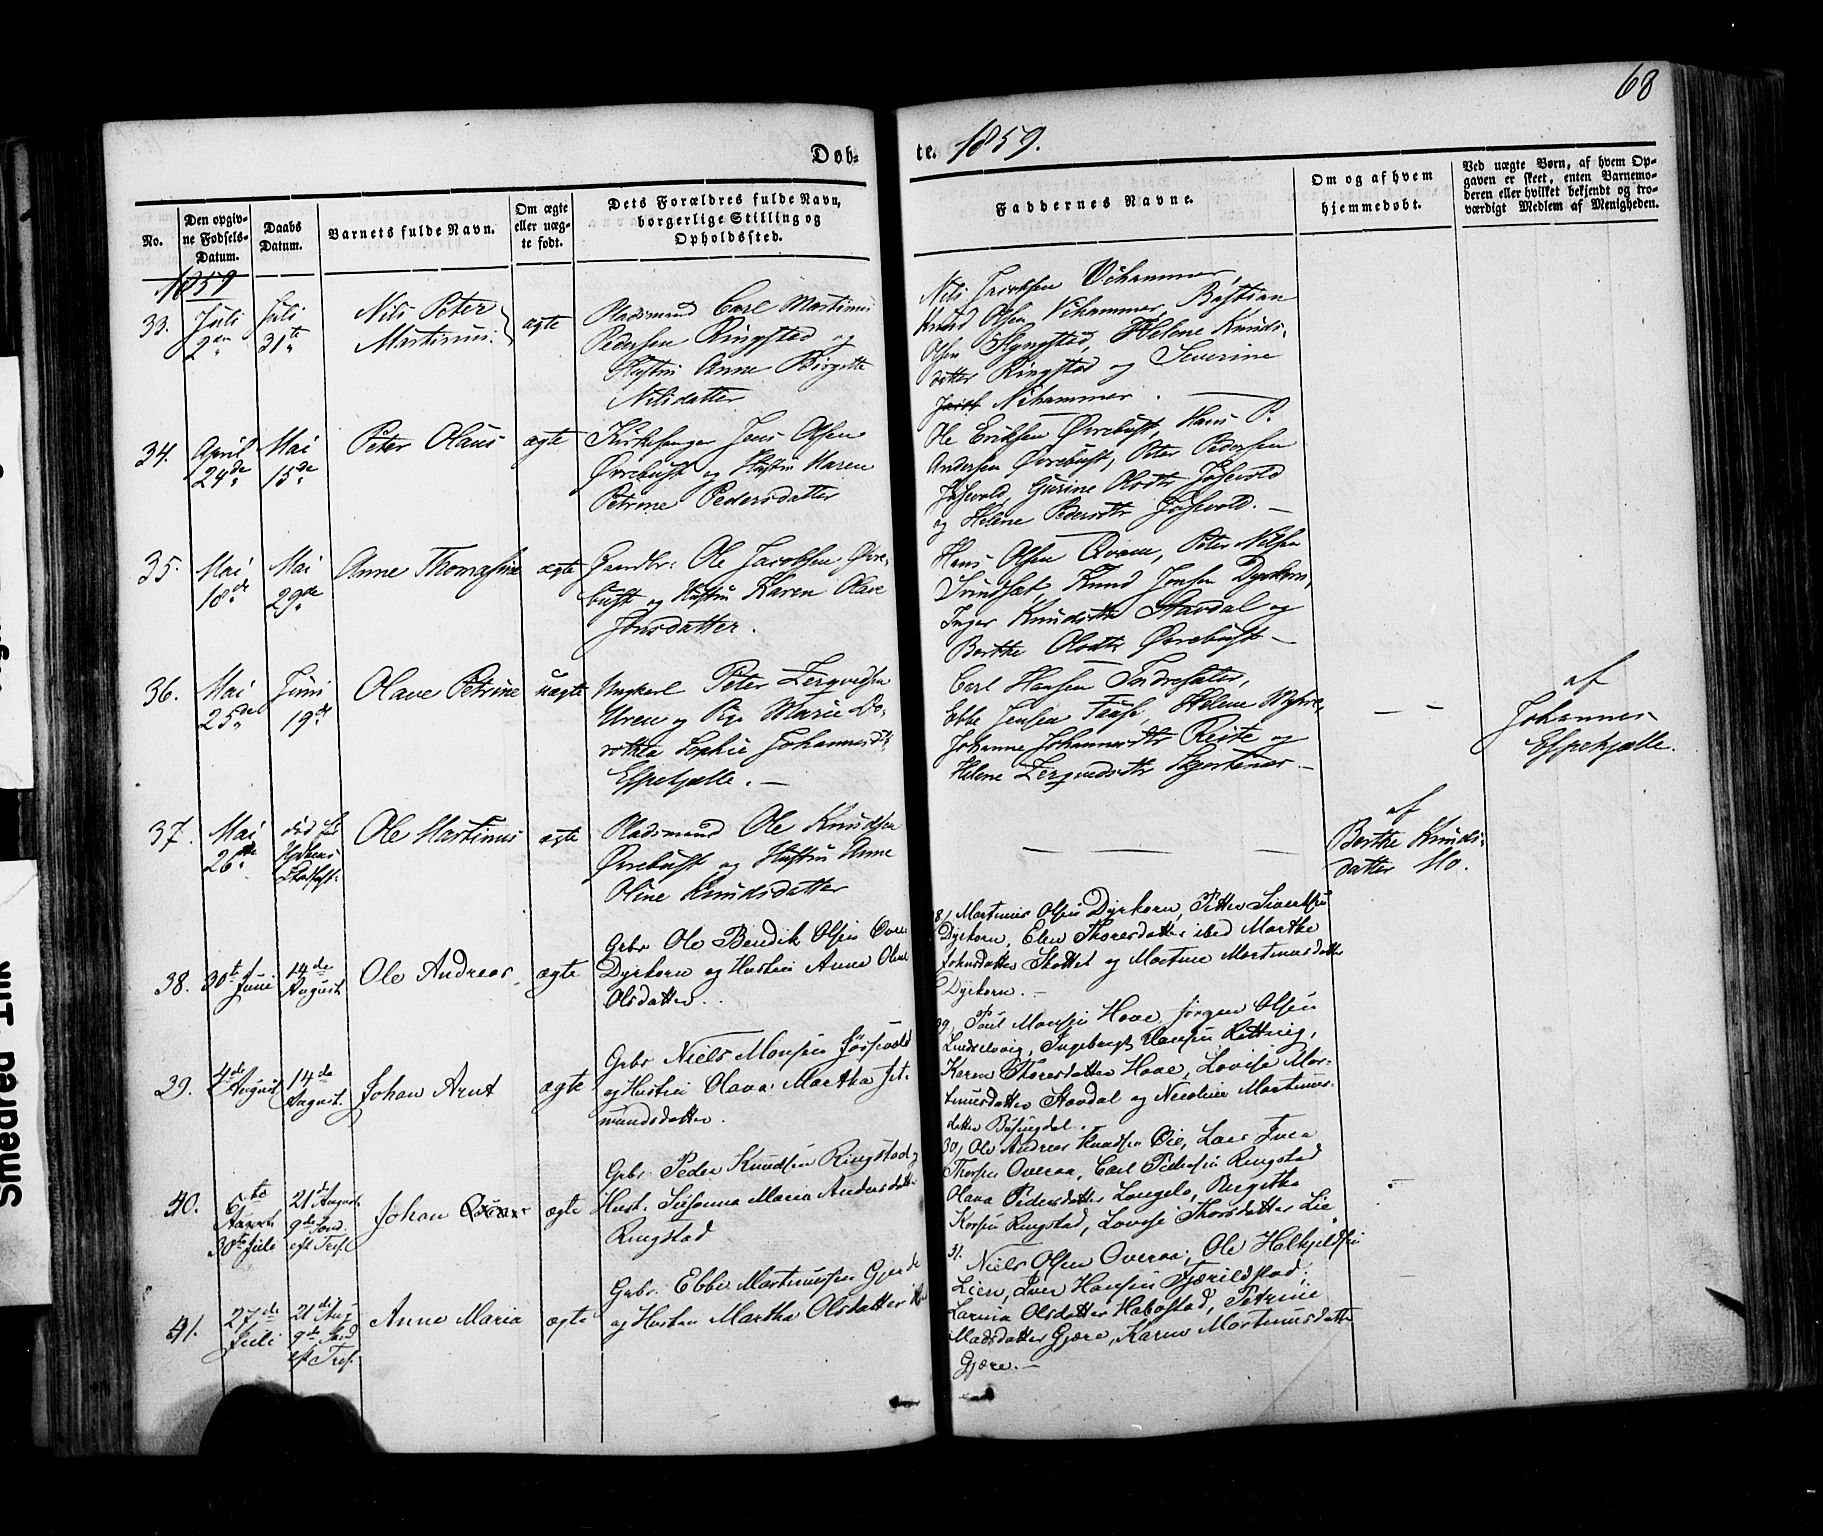 68
Døb-
te. 1859.
No.
Den opgiv-
ne Fødsels-
Datum.
Daabs
Datum.
Barnets fulde Navn.
Om ægte
eller uæg-
te født.
Dets Forældres fulde Navn,
borgerlige Stilling og
Opholdssted.
Faddernes Navne.
Om og af hvem
hjemmedøbt.
Ved uægte Børn, af hvem Op-
gaven er skeet, enten Barnemo-
deren eller hvilket bekjendt og tro-
værdigt Medlem af Menigheden.
1859
33.
Juli
2den
Juli
31te
Nils Peter
Martinus.
ægte
Pladsmand Carl Martinus
Pedersen Ringstad og
Hustru Anne Birgitte
Nilsdatter
Nils Jacobsen Vihammer,
Knud Olsen Vihammer, Bastian
Olsen Ryngstad, Helene Knuds-
datter Ringstad og Severine
Vihammer.
34.
April
24de
Mai
15de
Peter Olaus
ægte
Kirkesanger Jens Olsen
Øvrebust og Hustru Karen
Petrine Pedersdatter
Ole Eriksen Øvrebust, Hans P.
Andersen Øvrebust, Peter Pedersen
Jøsevold, Gurine Olsdtr Jøsevold
og Helene Pedersdtr Jøsevold.
35.
Mai
18de
Mai
29de
Anne Thomasine
ægte
Gaardbr. Ole Jacobsen Øvre-
bust og Hustru Karen Olave
Jonsdatter.
Hans Olsen Qvam, Peter Nilsen
Svindset, Knud Jonsen Dyrkorn,
Inger Knudsdtr Stavdal og
Berthe Olsdtr Øvrebust
36.
Mai
25de
Juni
19de
Olave Petrine
uægte
Ungkarl Peter
Uren og Pige Marie Do-
rothea Sophie Johannesdtr
Espehjelle.
Carl Hansen
Ebbe Jensen Helene
Johanne Johannesdtr Reite og
Helene
af
Johannes
Espehjelle.
37.
Mai
26de
død
Ole Martinus
ægte
Pladsmand Ole Knudsen
Øvrebust og Hustru Anne
Oline Knudsdatter
af
Berthe Knuds-
datter Mo.
38.
30te Juni
14de
August
Ole Andreas
ægte
Grbr Ole Bendik Olsen Øvre
Dyrkorn og Hustru Anne Oline
Olsdatter.
Martinus Olsen Dyrkorn, Petter Sivertsen
Dyrkorn, Elen Thoresdatter ibed Marthe
Johnsdatter Skottet og Martine Martinusdatter
Dyrkorn.
39.
4de
August
14de
August.
Johan Arnt
ægte
Grbr Niels Monsen Jøsevold
og Hustru Olava Martha Jet-
mundsdatter.
39, Poul Monsen Hove, Jørgen Olsen
Lindsetvig, Ingebrigt Hansen Rettvig,
Karen Thoresdatter Hove, Lovise Mar-
tinusdatter Stavdal og Nicoline Martinus-
datter Busengdal.
40.
6te
August
30te Juli
21de August
9de Sønd.
eft Tref.
Johan
ægte
Grbr. Peder Knudsen Ringstad og
Hust. Susanna Maria Andersdatter
Ringstad
30, Ole Andreas Knudsen Øie, Lars Iver
Thorsen Overaa, Carl Pedersen Ringstad
Olava Pedersdatter Langelo, Birgitha
Korsen Ringstad, Lovise Thorsdatter Lie
41.
27de
Juli
21de Aug
9de Sønd
eft Tref.
Anne Maria
ægte
Grbr. Ebbe Martinussen Gjerde
og Hustru Martha Olsdatter
31. Niels Olsen Overaa, Ole Halkjeldsen
Lien, Iver Hansen Tjærildstad,
Larina Olsdatter Habostad, Petrine
Madsdatter Gjære, Karen Martinusdatter
Gjære.
Smedred Ink